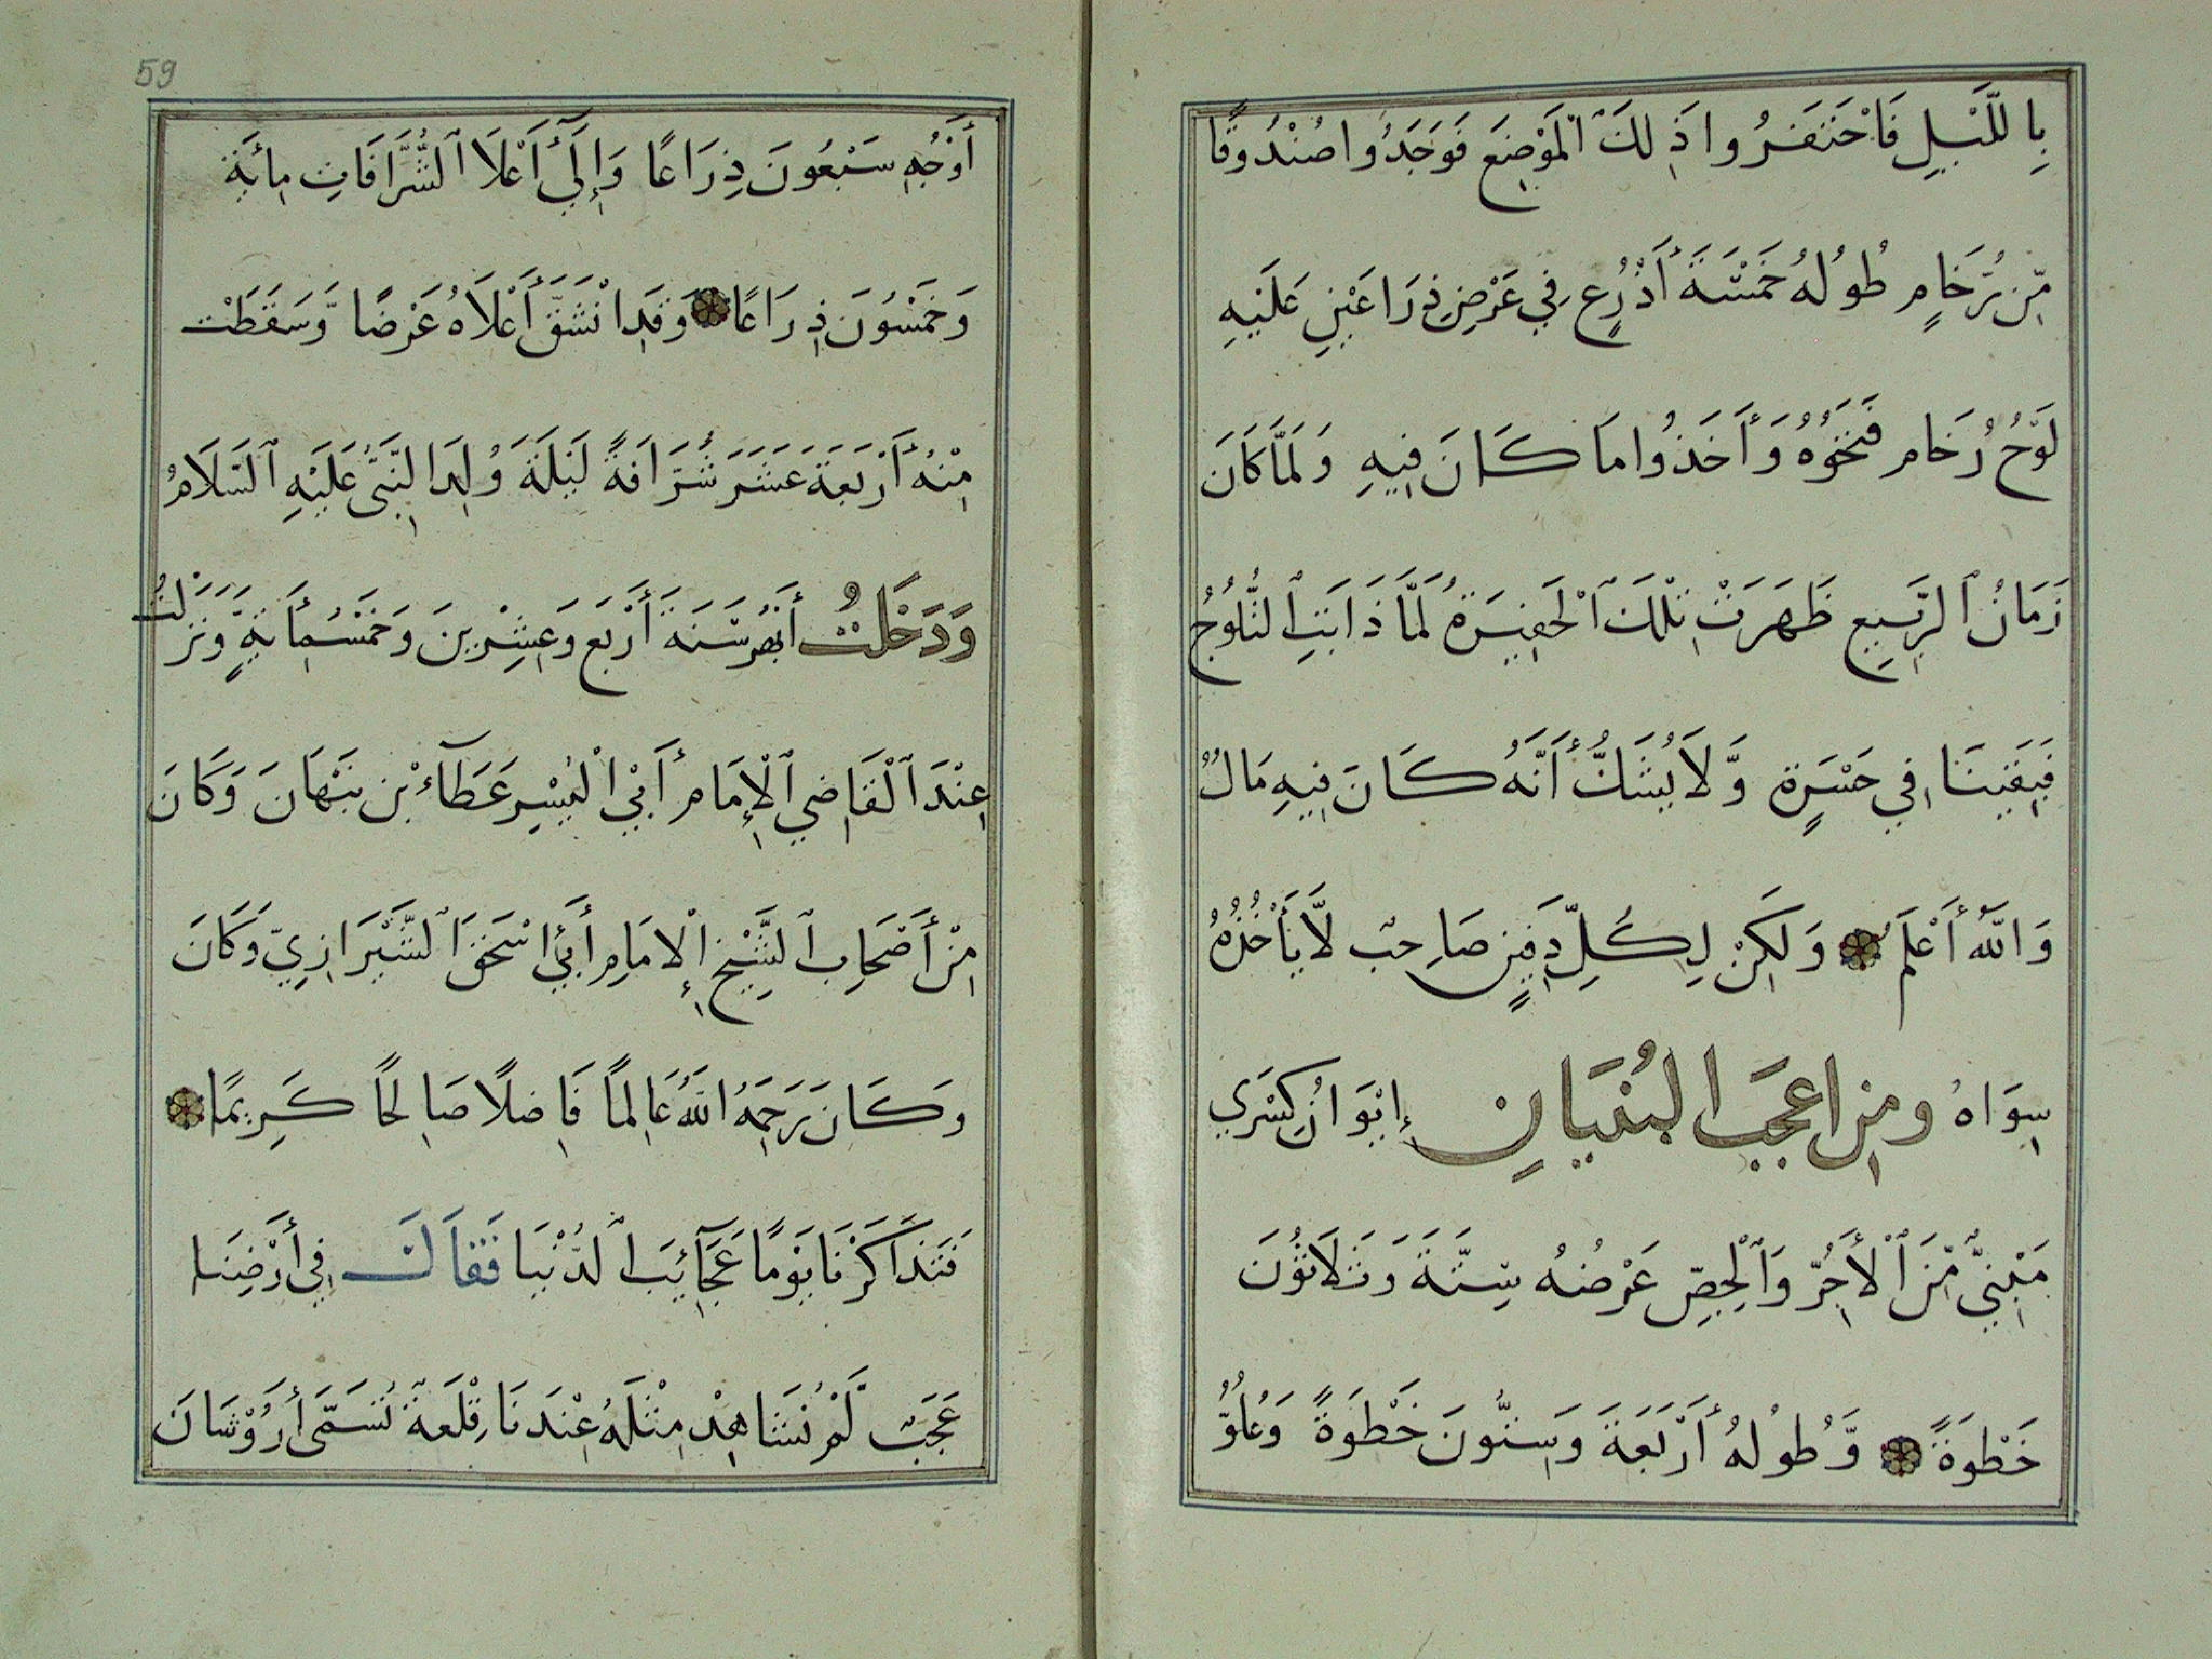 بِاللَّيْلِ فَاحْتَفَرُوا ذَٰلِكَ الْمَوْضِعَ فَوَجَدُوا صُنْدُوقًا
مِّن رُّخَامٍ طُولُهُ خَمْسَةَ أَذْرُعٍ فِي عَرْضِ ذِرَاعَيْنِ عَلَيْهِ
لَوْحُ رُخَام فَتَحُوهُ وَأَخَذُوا مَا كَانَ فِيهِ وَلَمَّا كَانَ
زَمَانُ الرَّبِيعِ ظَهَرَتْ تِلْكَ الْحَفِيرَةُ لَمَّا ذَابَتِ الثُّلُوجُ
فَبَقِينَا فِي حَسْرَةٍ وَّلَا يُشَكُّ أَنَّهُ كَانَ فِيهِ مَالٌ
وَاللَّهُ أَعْلَمُ وَلَكِنْ لِكُلِّ دَفِينٍ صَاحِبٌ لَّا يَأْخُذُهُ
سِوَاهُ ومِن اعجَبَ البُنيَانِ إِيْوَانُ كِسْرَي
مَبْنِيٌّ مِّنَ الْأَجُرِّ وَالْجِصِّ عَرْضُهُ سِتَّةَ وَثَلَاثُونَ
خَطْوَةً وَّطُولُهُ أَرْبَعَةَ وَسِتُّونَ خَطْوَةً وَعُلُوُّ
59
أَوْجُهِ سَبْعُونَ ذِرَاعًا وَإِلَي أَعْلَا الشُّرَّافَاتِ مِائَة
وَخَمْسُونَ ذِرَاعًا وَقَدِ انْشَقَّ أَعْلَاهُ عَرْضًا وَّسَقَطَتْ
مِنْهُ أَرْبَعَةَ عَشَرَ شُرَّافَةً لَيْلَةَ وُلِدَ النَّبِيُّ عَلَيْهِ السَّلَامُ
وَدَخَلتُ أَبْهَرَ سَنَةَ أَرْبَعِ وَعِشْرِينَ وَخَمْسُمِأَئَةٍ وَّنَزَلْتُ
عِنْدَ الْقَاضِي الْإِمَامِ أَبِي الْيُسْرِ عَطَآءْ بْن نَبْهَانَ وَكَانَ
مِنْ أَصْحَابِ الشَّيْخِ الْإِمَامِ أَبِي إسْحَقَ الشَّيْرَازِيِّ وَكَانَ
وكَانَ رَحِمَهُ اللَّهُ عَالِمًا فَاضِلًا صَالِحًا كَرِيمًا
فَتَذَاكَرْنَا يَوْمًا عَجَآئِبَ الدُّنْيَا فَقَالَ فِي أَرْضِنَا
عَجَبٌ لَّمْ نُشَاهِدْ مِثْلَهُ عِنْدَنَا قِلْعَة تُسَمَّى أَرَوْشَانَ